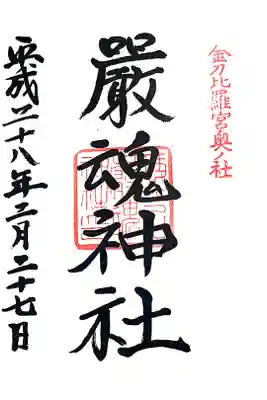 金刀比羅宮奥ノ社
嚴魂神社
平成二十八年二月二十七日